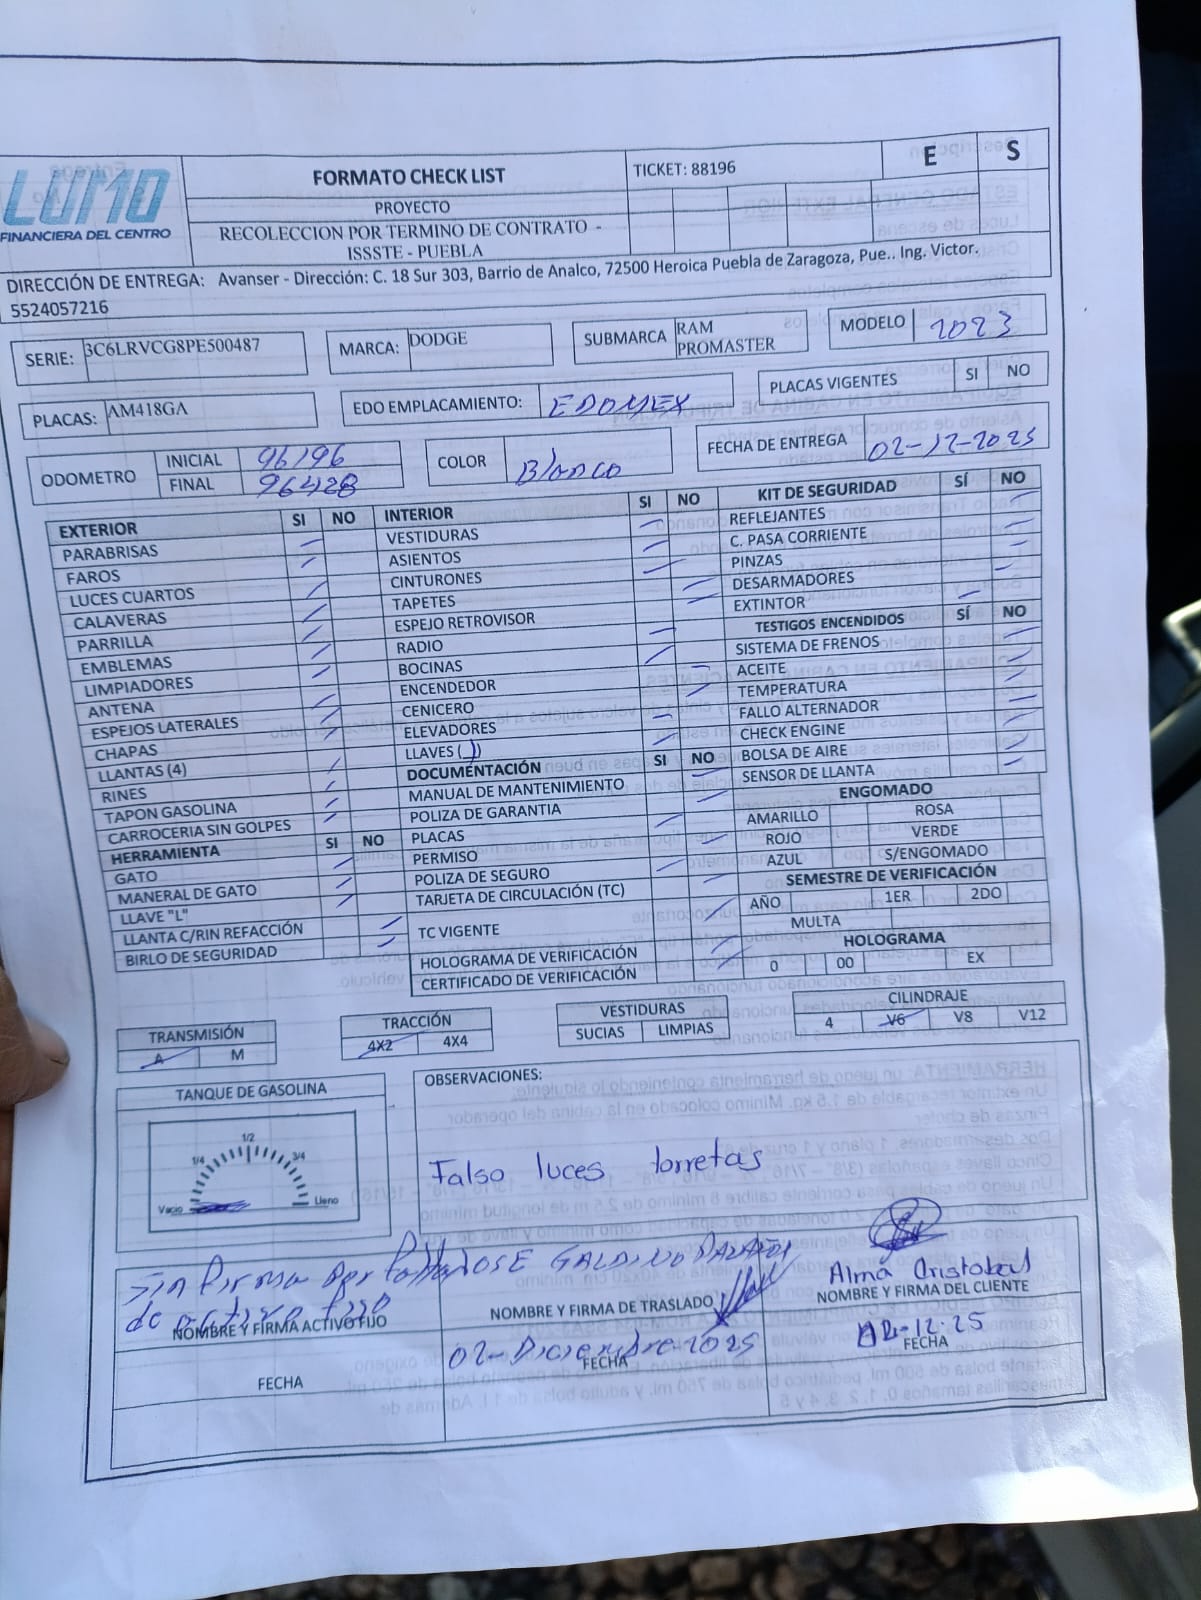 LUMO
FINANCIERA DEL CENTRO
FORMATO CHECK LIST
TICKET: 88196
E S
PROYECTO
RECOLECCION POR TERMINO DE CONTRATO -
ISSSTE - PUEBLA
DIRECCIÓN DE ENTREGA: Avanser - Dirección: C. 18 Sur 303, Barrio de Analco, 72500 Heroica Puebla de Zaragoza, Pue.. Ing. Victor.
5524057216
SERIE: 3C6LRVCG8PE500487
MARCA: DODGE
SUBMARCA RAM PROMASTER
MODELO 2023
PLACAS: AM418GA
EDO EMPLACAMIENTO: EDOMEX
PLACAS VIGENTES SI NO
ODOMETRO INICIAL 96196
FINAL 96428
COLOR Blanco
FECHA DE ENTREGA 02-12-2025
EXTERIOR SI NO
PARABRISAS
FAROS
LUCES CUARTOS
CALAVERAS
PARRILLA
EMBLEMAS
LIMPIADORES
ANTENA
ESPEJOS LATERALES
CHAPAS
LLANTAS (4)
RINES
TAPON GASOLINA
CARROCERIA SIN GOLPES
HERRAMIENTA SI NO
GATO
MANERAL DE GATO
LLAVE "L"
LLANTA C/RIN REFACCIÓN
BIRLO DE SEGURIDAD
INTERIOR SI NO
VESTIDURAS
ASIENTOS
CINTURONES
TAPETES
ESPEJO RETROVISOR
RADIO
BOCINAS
ENCENDEDOR
CENICERO
ELEVADORES
LLAVES ( )
DOCUMENTACIÓN SI NO
MANUAL DE MANTENIMIENTO
POLIZA DE GARANTIA
PLACAS
PERMISO
POLIZA DE SEGURO
TARJETA DE CIRCULACIÓN (TC)
TC VIGENTE
HOLOGRAMA DE VERIFICACIÓN
CERTIFICADO DE VERIFICACIÓN
KIT DE SEGURIDAD SÍ NO
REFLEJANTES
C. PASA CORRIENTE
PINZAS
DESARMADORES
EXTINTOR
TESTIGOS ENCENDIDOS SÍ NO
SISTEMA DE FRENOS
ACEITE
TEMPERATURA
FALLO ALTERNADOR
CHECK ENGINE
BOLSA DE AIRE
SENSOR DE LLANTA
ENGOMADO
AMARILLO ROSA
ROJO VERDE
AZUL S/ENGOMADO
SEMESTRE DE VERIFICACIÓN
AÑO 1ER 2DO
MULTA
HOLOGRAMA
0 00 EX
TRANSMISIÓN
A M
TRACCIÓN
4X2 4X4
VESTIDURAS
SUCIAS LIMPIAS
CILINDRAJE
4 V6 V8 V12
TANQUE DE GASOLINA
1/2
1/4 3/4
Vacio Lleno
OBSERVACIONES:
Falso luces torretas
Sin firma
de activo fijo
NOMBRE Y FIRMA ACTIVO FIJO
FECHA
JOSE GALDINO
NOMBRE Y FIRMA DE TRASLADO
02-Diciembre 2025
FECHA
Alma Cristobal
NOMBRE Y FIRMA DEL CLIENTE
02-12-25
FECHA